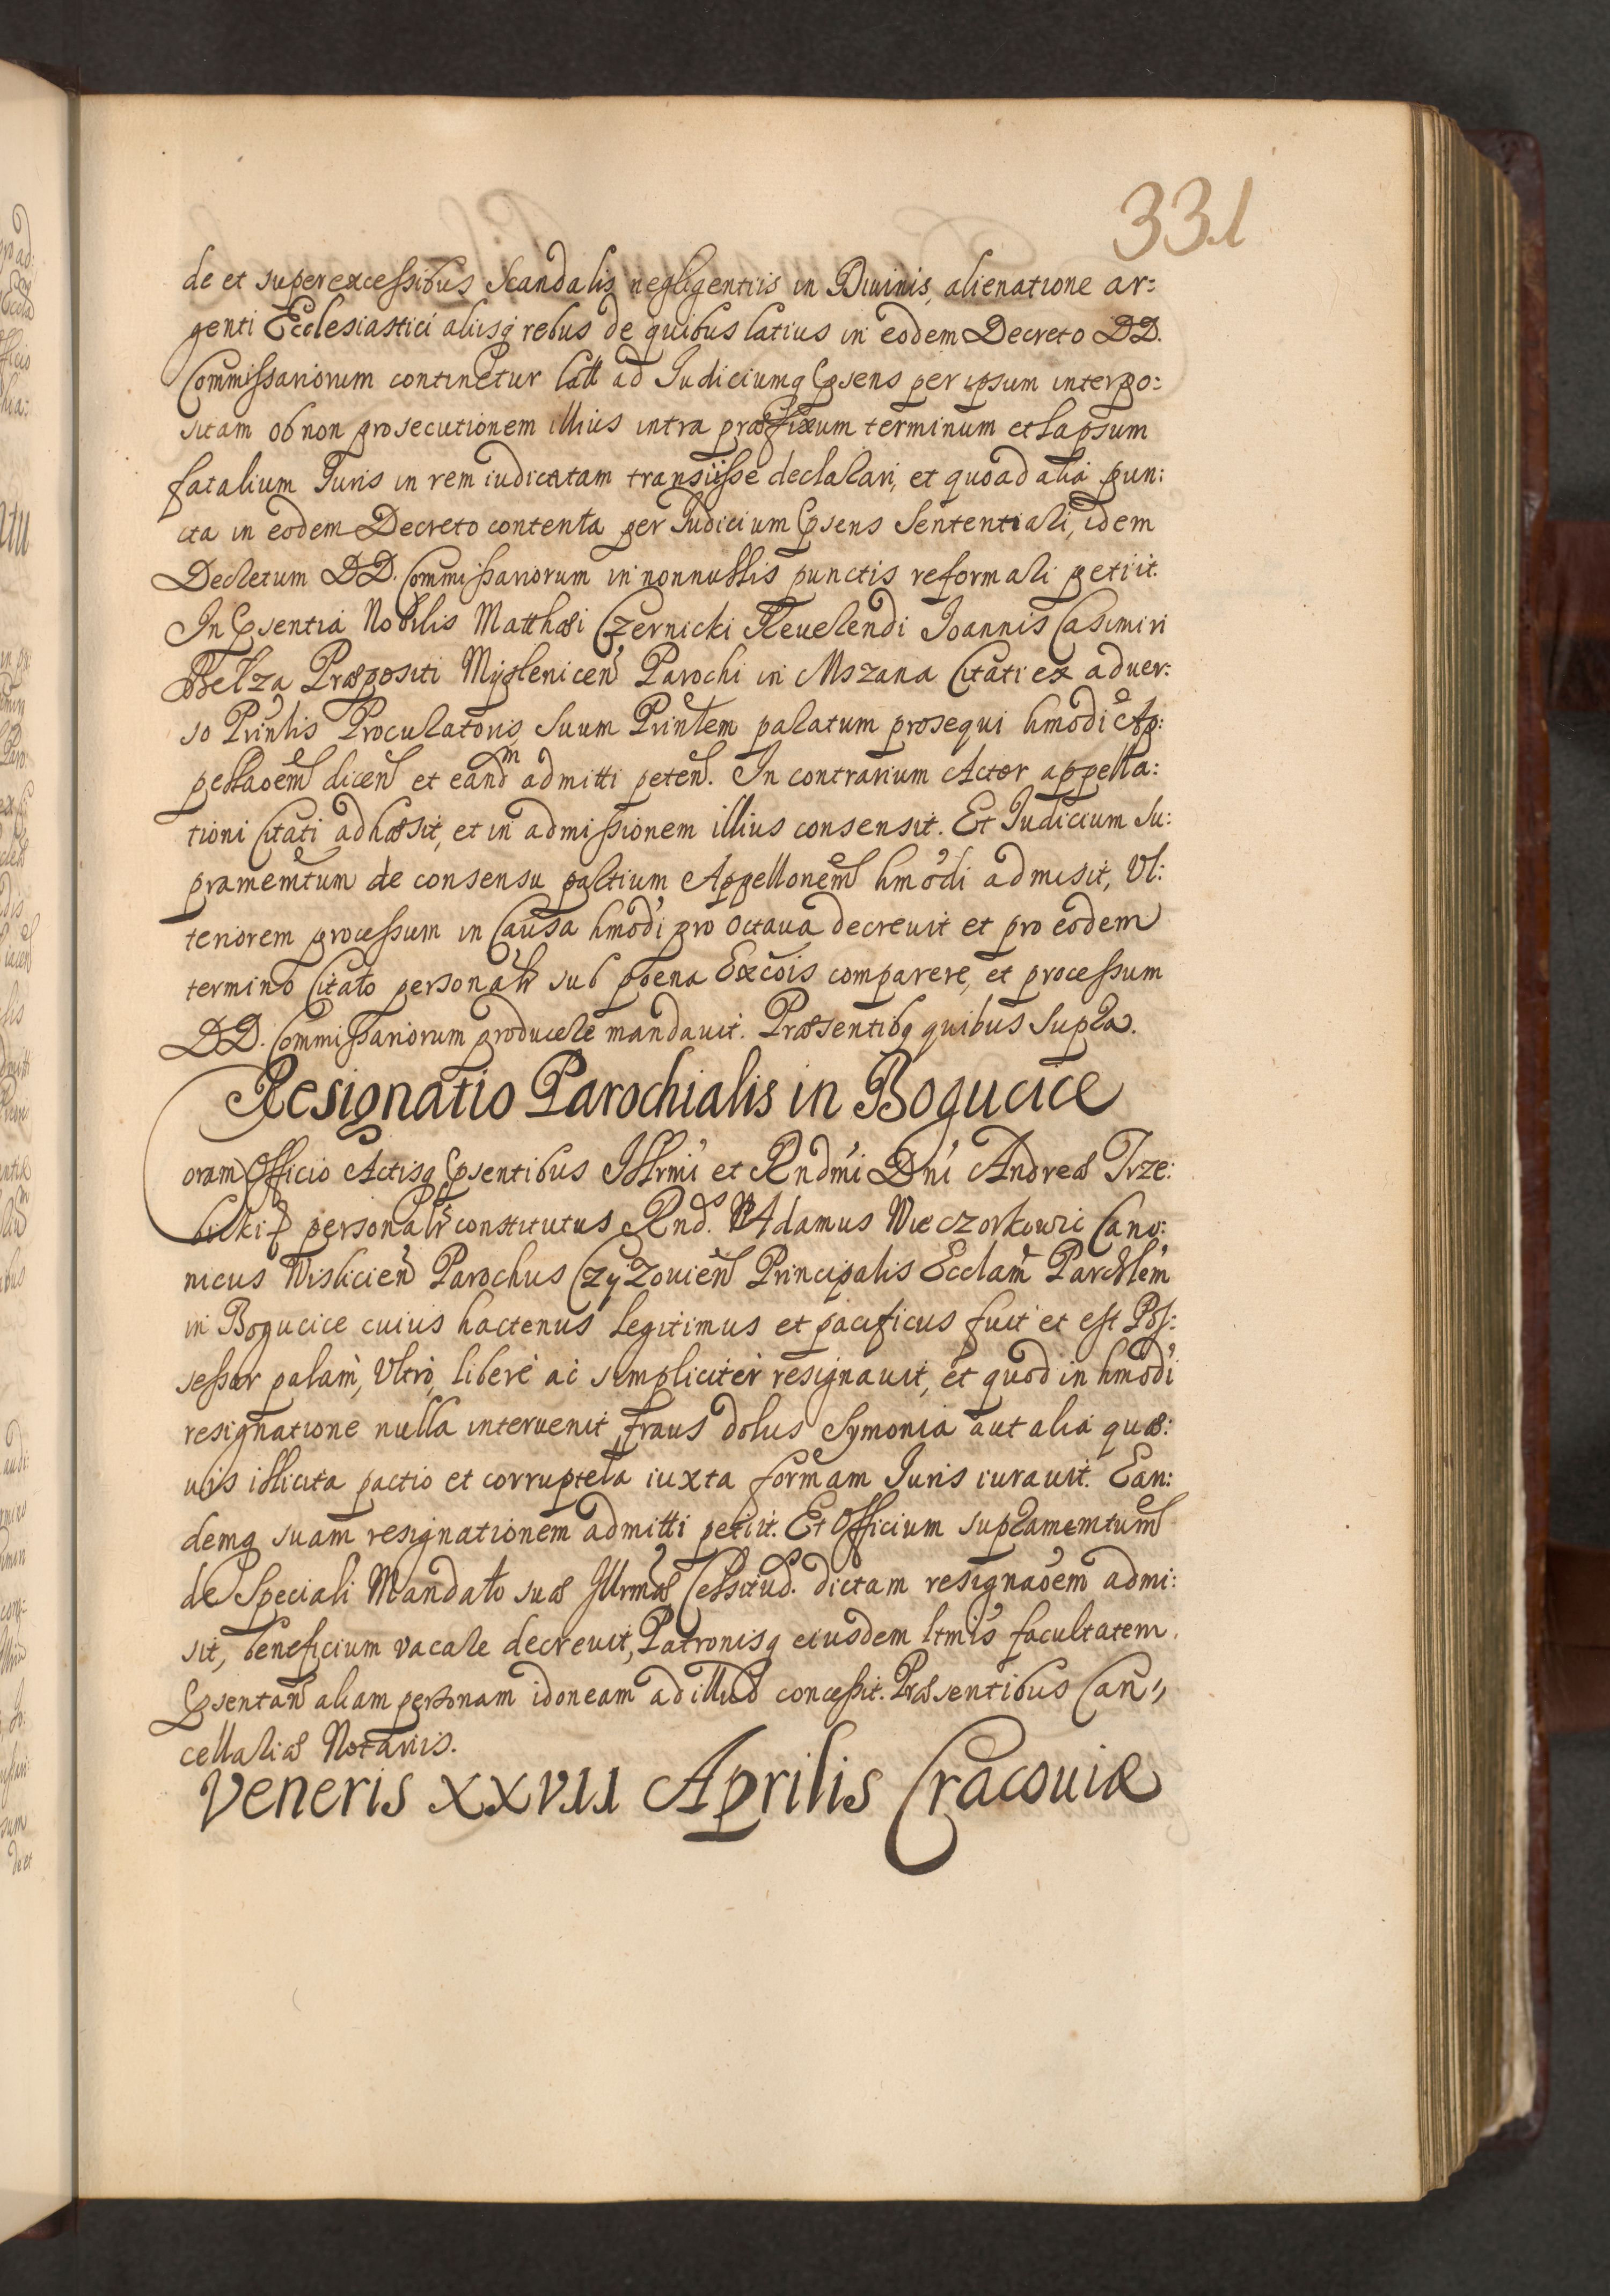 331
de et super excessibus scandalis negligentiis in Divinis, alienatione ar:
genti Ecclesiastici aliisq rebus de quibus latius in eodem Decreto DD.
Commissariorum continetur latt ad Iudiciumq Psens per ipsum interpo:
sitam ob non prosecutionem illius intra præfixum terminum et lapsum
fatalium Iuris in rem iudicatam transiisse declarari, et quoad alia pun:
cta in eodem Decreto contenta per Iudicium Psens Sententiari, idem
Decretum DD. Commissariorum in nonnullis punctis reformari petiit.
In Psentia Nobilis Matthæi Czernicki Reverendi Ioannis Casimiri
Belza Præpositi Myslenicen Parochi in Mszana Citati ex adver:
so Prinlis Procuratoris Suum Prinlem paratum prosequi hmodi Ap:
pellaoem dicen et eandm admitti peten. In contrarium Actor appella:
tioni Citati adhæsit, et in admissionem illius consensit. Et Iudicium Su:
pramemtum de consensu partium Appellonem hmodi admisit, Vl:
teriorem processum in Causa hmodi pro octava decrevit et pro eodem
termino Citato personalr sub poena Excois comparere, et processum
DD. Commissariorum producere mandavit. Præsentibq quibus Supra.
Resignatio Parochialis in Bogucice
Coram Officio Actisq Psentibus Illrmi et Rndmi Dni Andreæ Trze:
bicki personalr constitutus Rnds. Adamus Wieczorkowic Cano:
nicus Wislicien Parochus Czyzovien Principalis Ecclam Parchlem
in Bogucice cuius hactenus legitimus et pacificus fuit et est Pos:
sessor palam, Vltro, libere ac simpliciter resignavit, et quod in hmodi
resignatione nulla intervenit fraus dolus Symonia aut alia quæ:
vis illicita pactio et corruptela iuxta formam Iuris iuravit. Ean:
demq suam resignationem admitti petiit. Et Officium supramemtum
de Speciali Mandato suæ Illrmæ Celssitud. dictam resignaoem admi:
sit, beneficium vacare decrevit, Patronisq eiusdem ltmis facultatem
Psentan aliam personam idoneam ad illud concessit. Præsentibus Can:
cellariæ Notariis.
Veneris XXVII Aprilis Cracoviæ